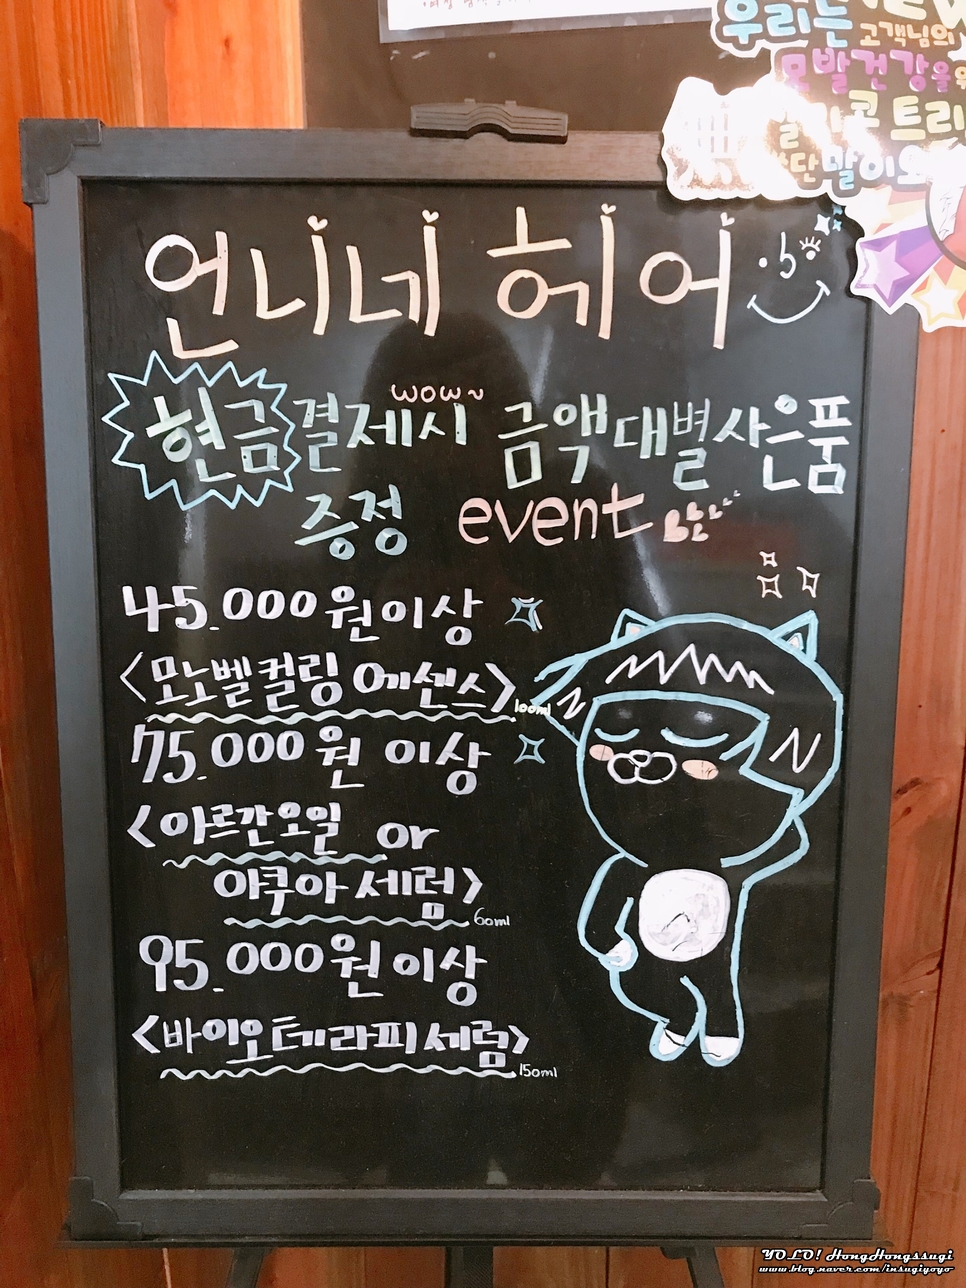 우리는 고객님의
모발건강을
콘트리
말이오
언니네 헤어
wow~
현금결제시 금액대별사은품
증정 event
45.000원이상
<모노벨컬링에센스>
100ml
75.000원 이상
<아르간오일 or
아쿠아세럼>
60ml
95.000원이상
<바이오테라피세럼>
150ml
YOLO! HongHongssugi
www.blog.naver.com/insugiyoyo